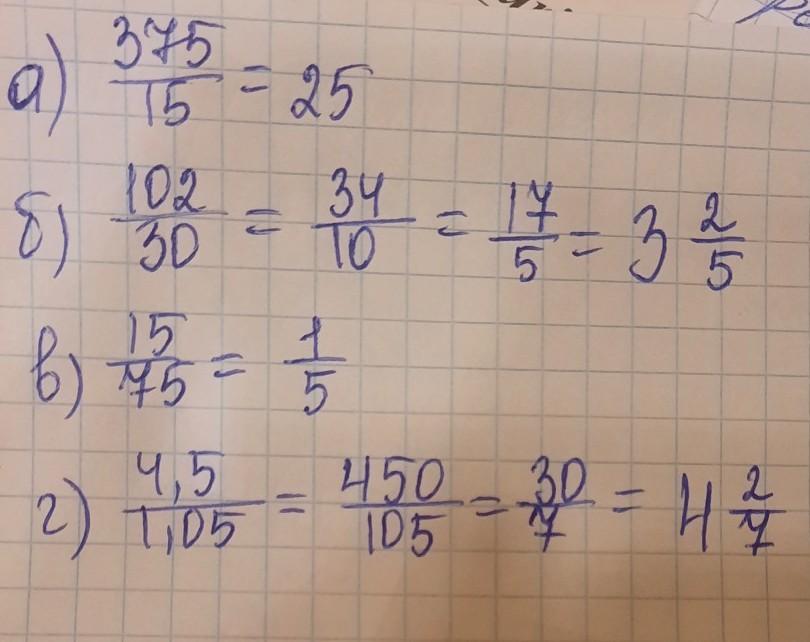 а) 375/15 = 25
б) 102/30 = 34/10 = 17/5 = 3 2/5
в) 15/75 = 1/5
г) 4,5/1,05 = 450/105 = 30/7 = 4 2/7